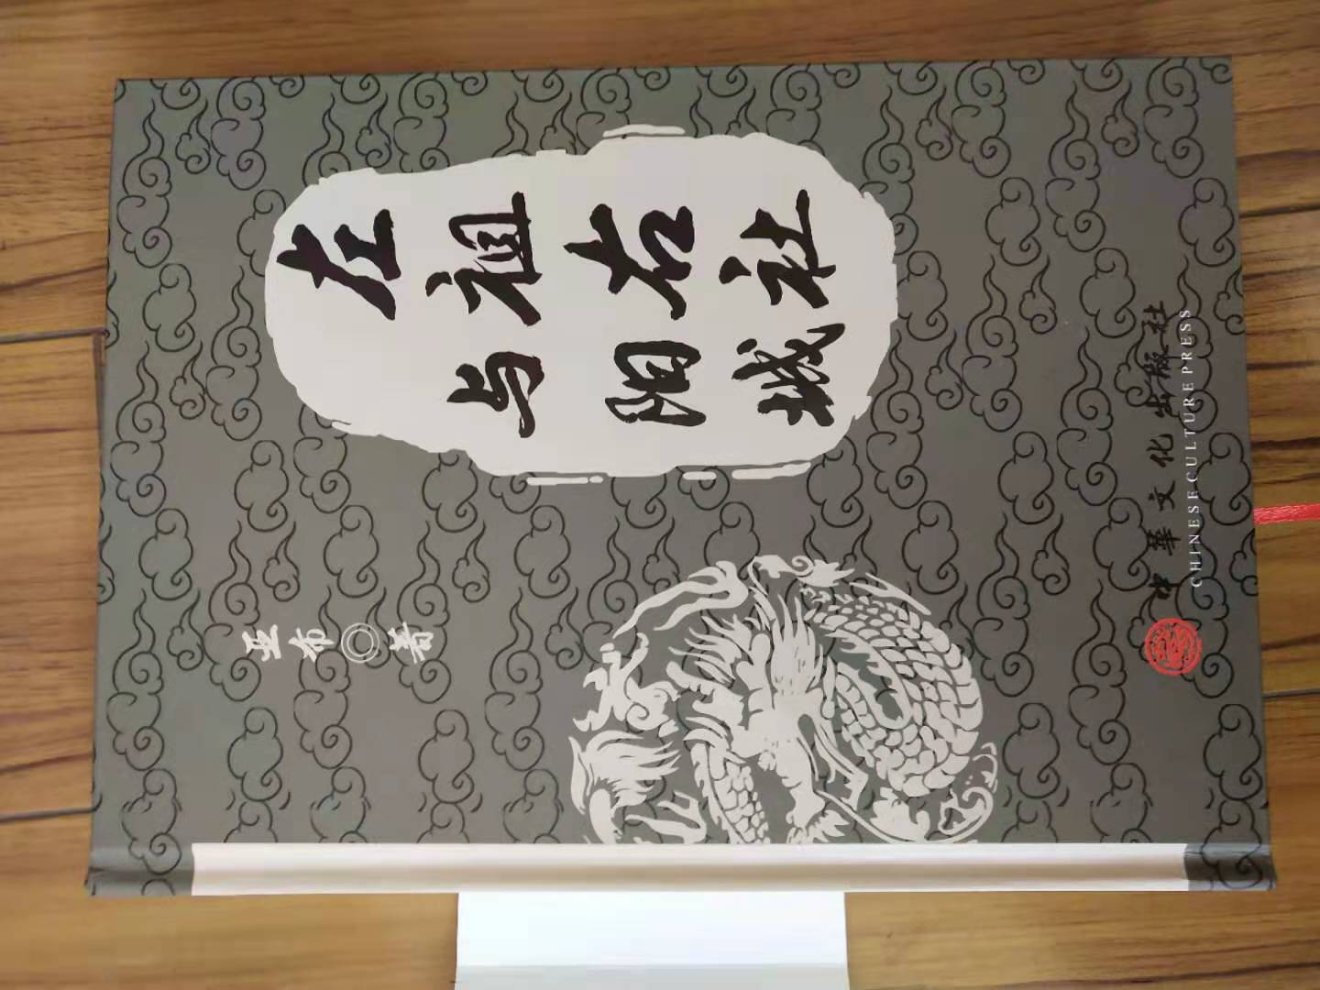 左祖右社
与阳城
亚布◎著
中華文化出版社
CHINESECULTUREPRESS